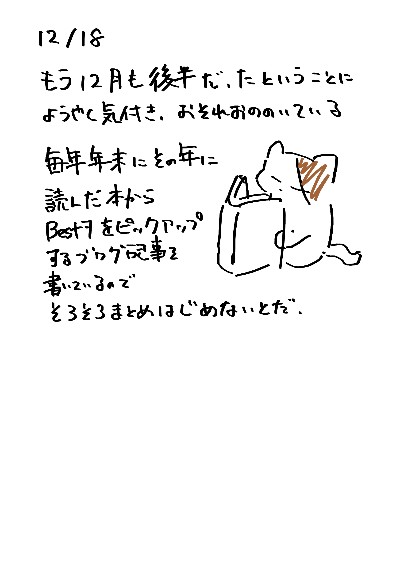 12/18
もう12月も後半だ、たということに
ようやく気付き、おそれおののいている
毎年年末にその年に
読んだ本から
Bestヲをピックアップ
するブログ記事を
書いているので
そろそろまとめはじめないとだ.